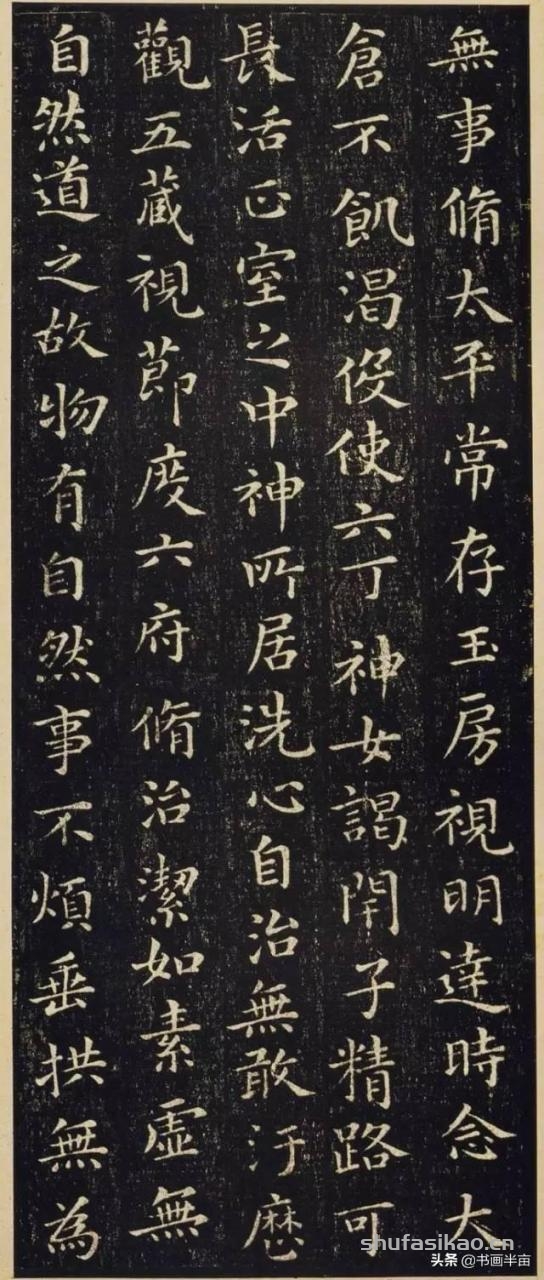 無事脩太平常存玉房視明達時念大
倉不飢渴役使六丁神女謁閇子精路可
長活正室之中神所居洗心自治無敢汙歷
觀五藏視節度六府脩治潔如素虛無
自然道之故物有自然事不煩垂拱無為
shufasikao.cn
头条 @书画半亩